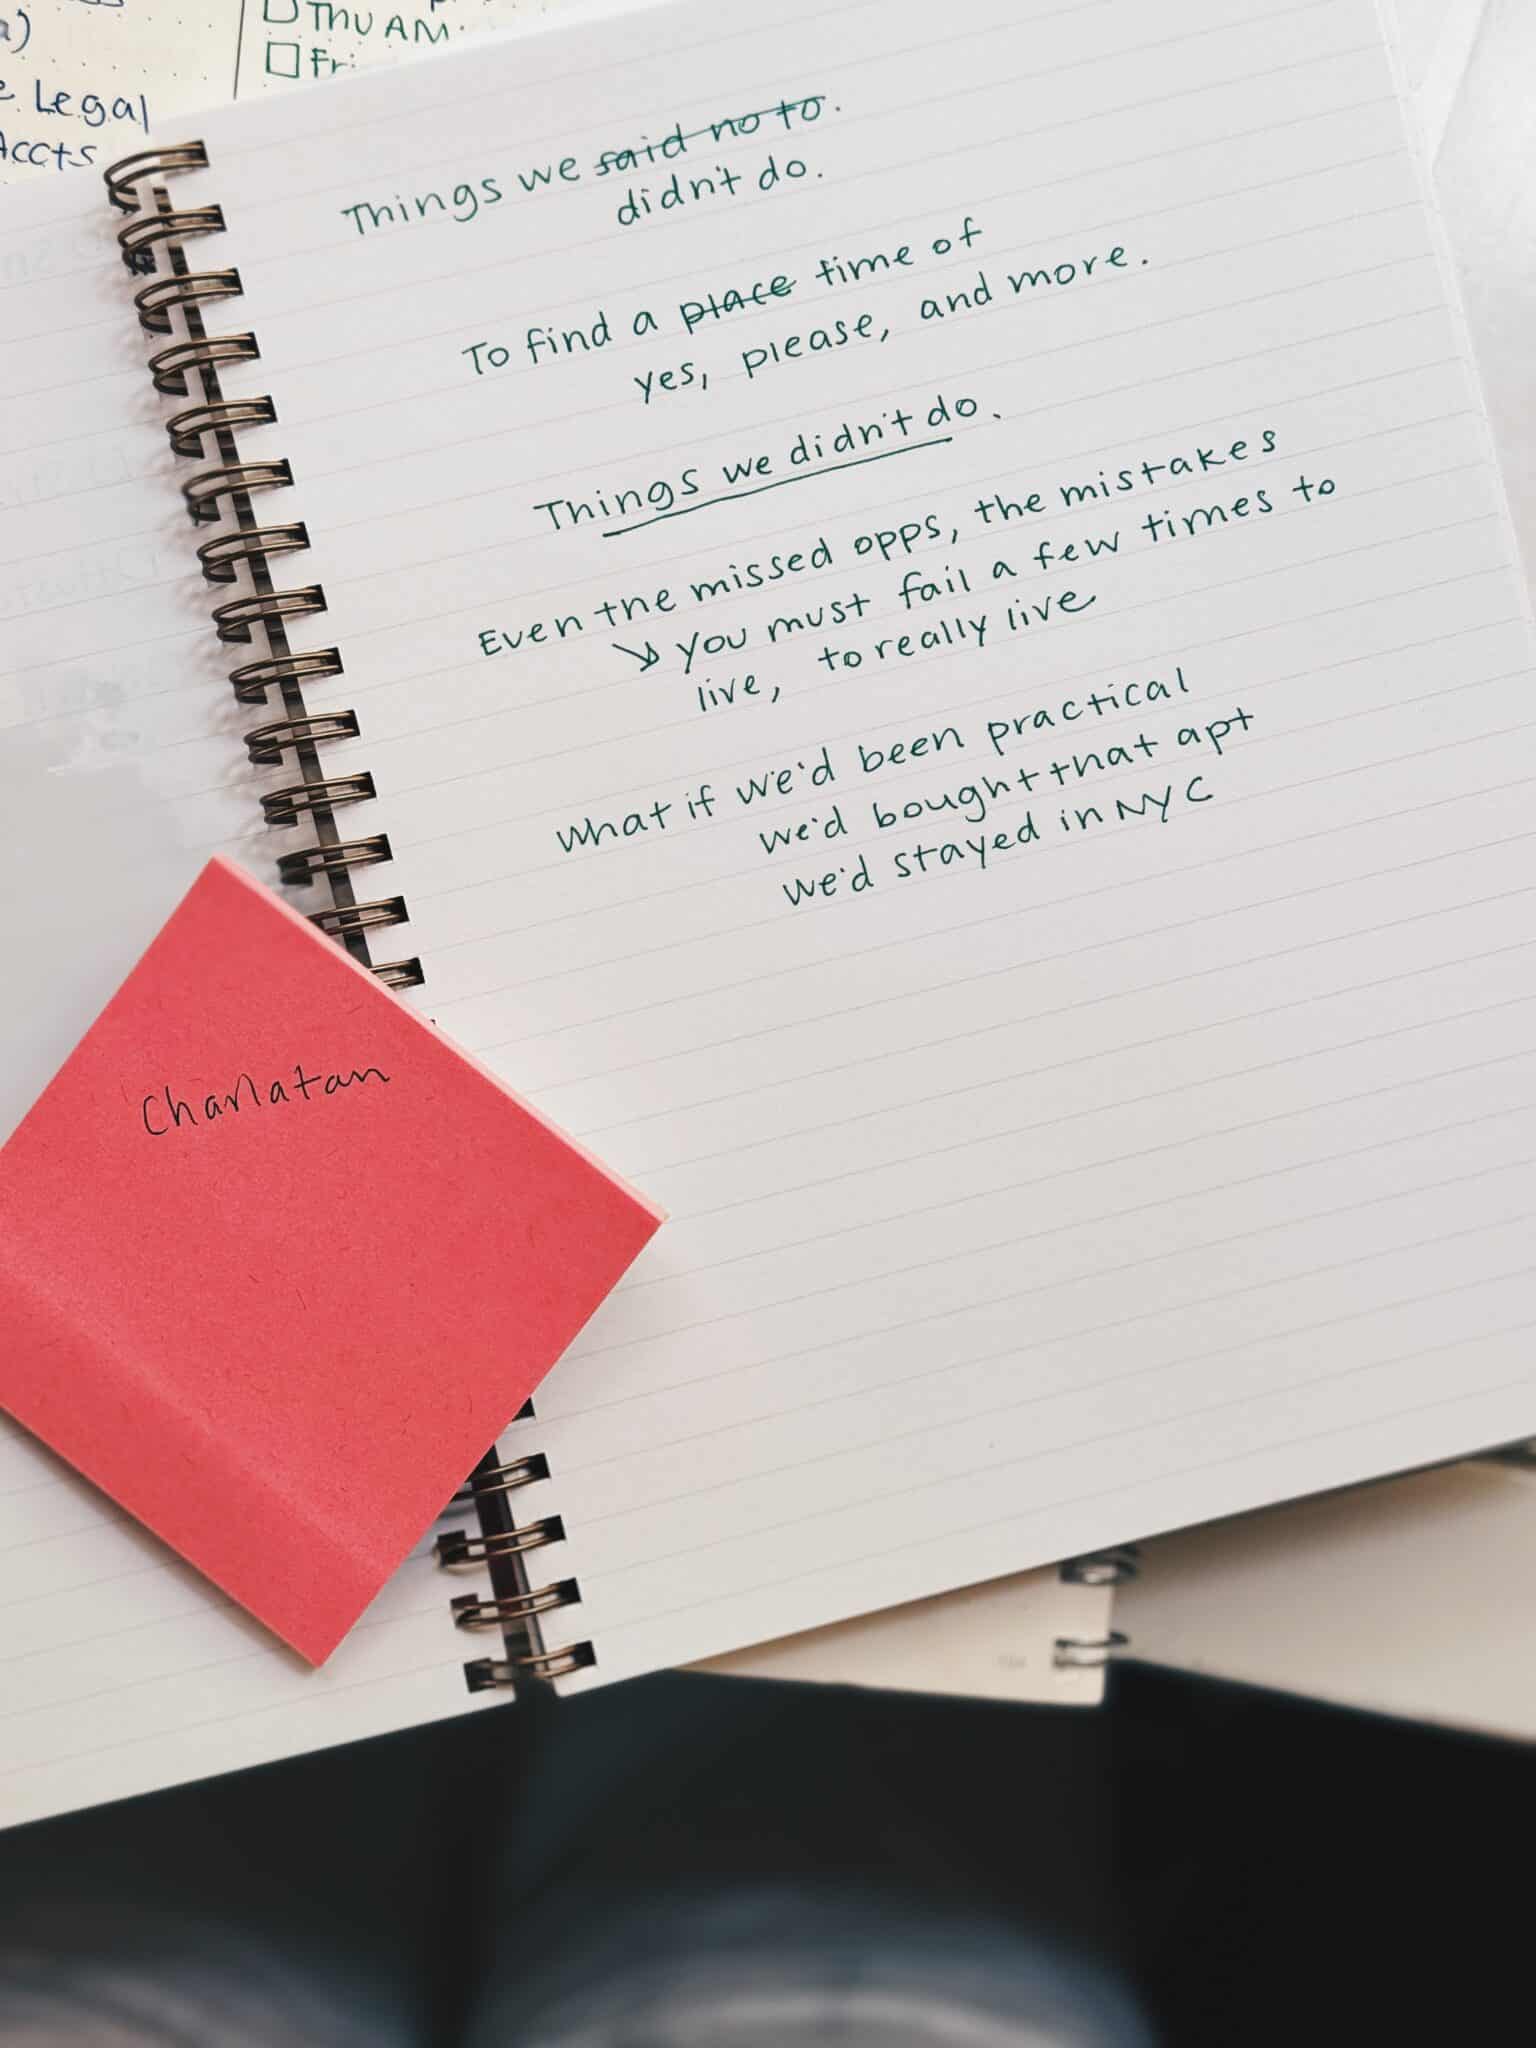 Thu AM.
Fri
Legal
Accts
Things we said no to.
didn't do.
To find a place time of
yes, please, and more.
Things we didn't do.
Even the missed opps, the mistakes
↘ you must fail a few times to
live, to really live
What if we'd been practical
we'd bought that apt
we'd stayed in NYC
Charlatan